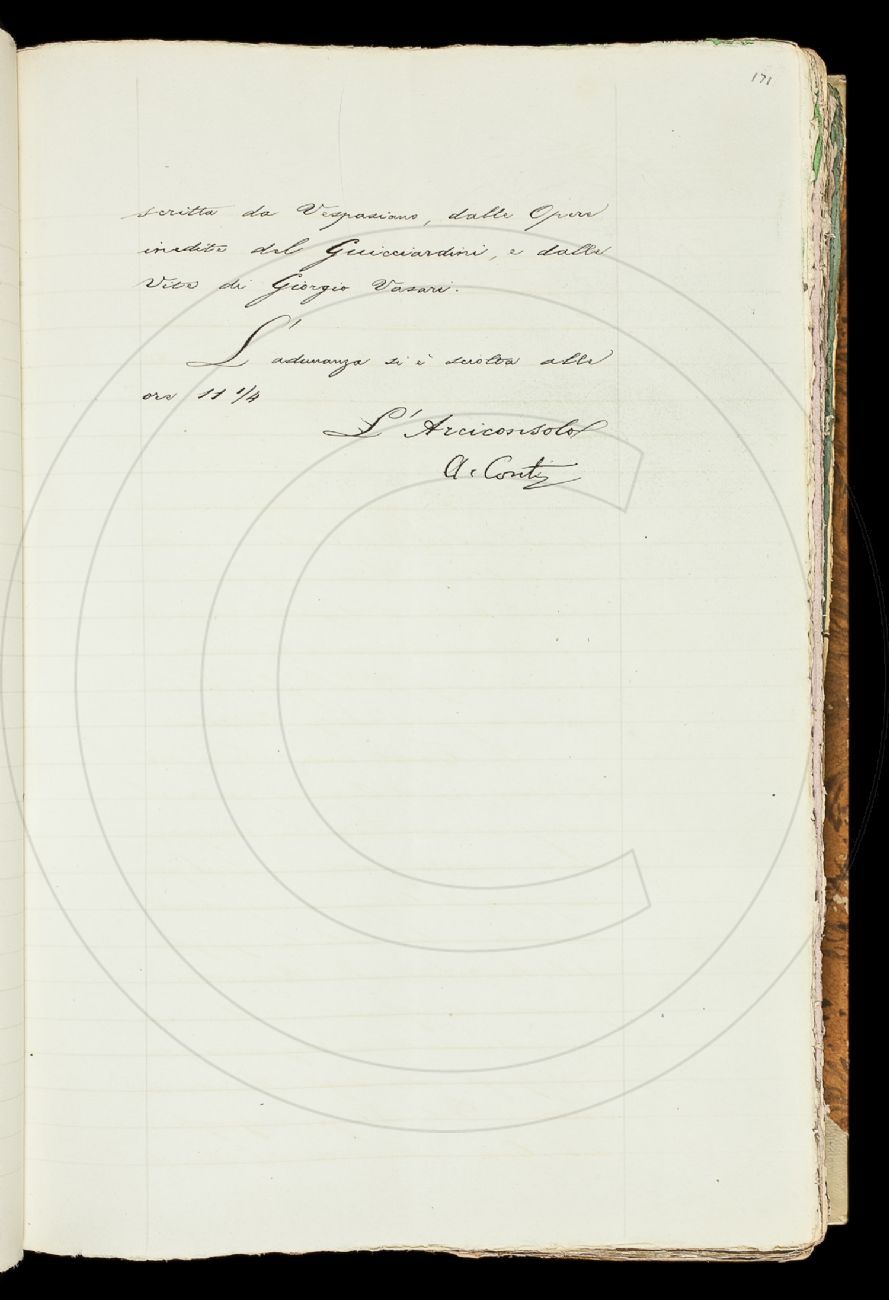 171
scritta da Vespasiano, dalle Opere
inedite del Guicciardini, e dalle
Vite di Giorgio Vasari.
L'adunanza si è sciolta alle
ore 11 1/4
L'Arciconsolo
A. Conti